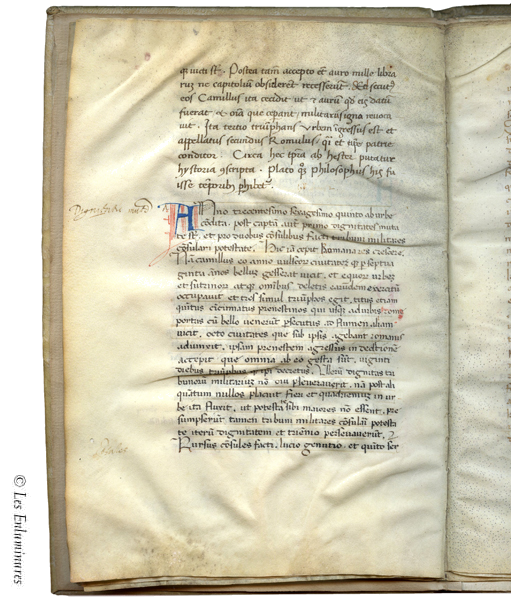 qui victi sunt. Postea tamen accepto etiam auro mille libra
rum ne capitolium obsiderent recesserunt. Sed secutus
eos Camillus ita cecidit ut et aurum quod eis datum
fuerat et omnia que ceperant militaria signa revoca
ret. Ita tertio triumphans Urbem ingressus est et
appellatus secundus Romulus, quasi et ipse patrie
conditor.
hystoria Plato Philosophus
Anno trecentesimo sexagesimo quinto ab urbe
condita, post captam autem primo dignitates muta
te sunt, et pro duobus consulibus facti tribuni militares
consulari potestate. Hinc iam cepit Romana res crescere,
Nam camillus eo anno vulscorum civitatem que per septua
ginta annos bellum gesserat vicit, et equorum urbem
et sutrinorum atque omnibus deletis earundem exercitum
occupavit et tres simul triumphos egit, titus etiam
quintus cincinatus prenestinos qui usque ad urbis rome
portas cum bello venerunt persecutus ad flumen aliam
vicit, octo civitates que sub ipsis agebant romanis
adiunxit, ipsam prenestem agressus in deditionem
accepit que omnia ab eo gesta sunt, viginti
diebus triumphus ipsi decretus. Verum dignitas tri
bunorum militarium non diu perseveravit, nam post ali
quantum nullos placuit fieri et quadriennium in ur
be ita fluxit, ut potestates ibi maiores non essent, pre
sumpserunt tamen tribuni militares consulari potesta
te iterum dignitatem et triennio perseveraverunt,
Rursus consules facti, lucio genutio, et quinto ser
© Les Enluminures